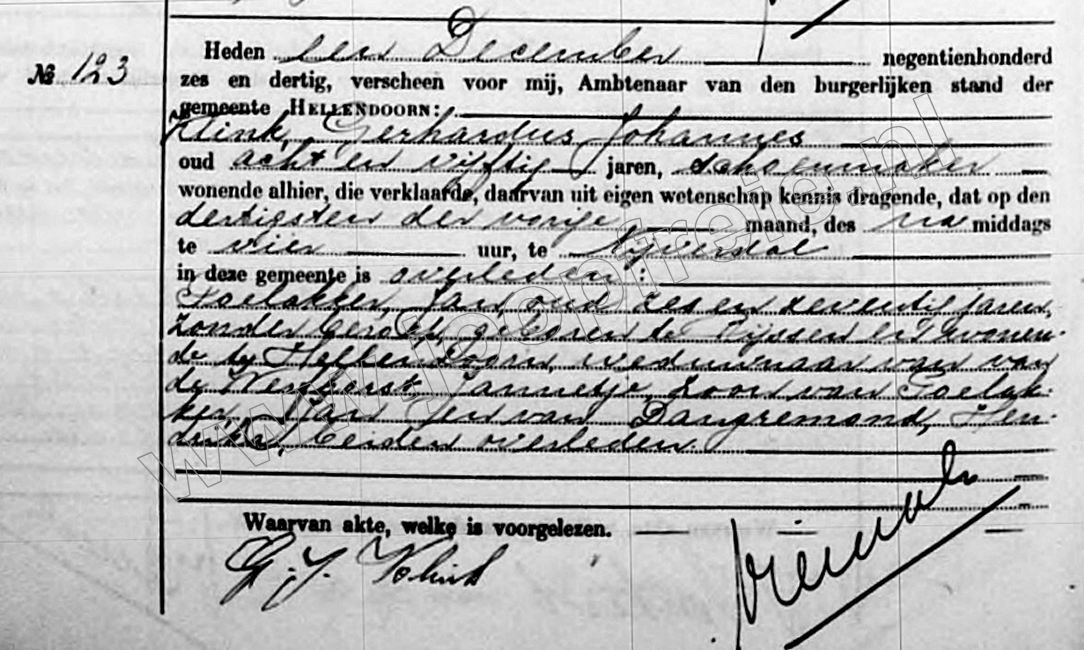 Heden een December negentienhonderd
№ 123
zes en dertig, verscheen voor mij, Ambtenaar van den burgerlijken stand der
gemeente HELLENDOORN:
Klink, Gerhardus Johannes
oud acht en vijftig jaren, schoenmaker
wonende alhier, die verklaarde, daarvan uit eigen wetenschap kennis dragende, dat op den
dertigsten der vorige maand, des na middags
te vier uur, te Nijverdal
in deze gemeente is overleden:
Poelakker, Jan, oud zes en zeventig jaren,
zonder beroep, geboren te Rijssen en wonen-
de bij Hellendoorn, weduwnaar van van
de Jannetje, zoon van Poelak-
ker, en van Dangremond, Hen-
drika, beiden overleden.
Waarvan akte, welke is voorgelezen.
G. J. Klink